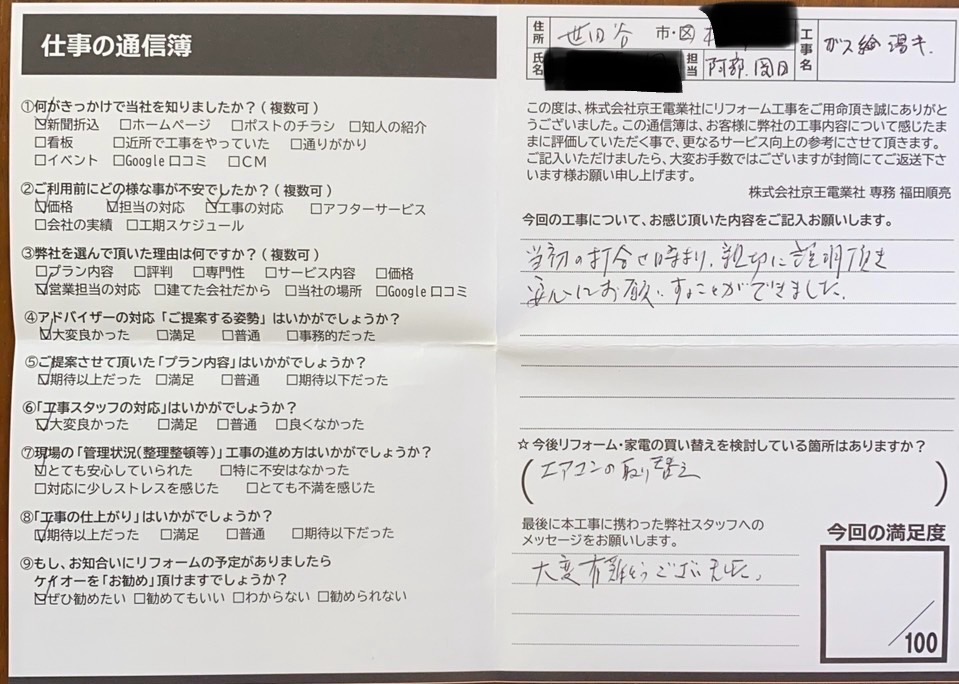 仕事の通信簿
①何がきっかけで当社を知りましたか？(複数可)
☑新聞折込 □ホームページ □ポストのチラシ □知人の紹介
□看板 □近所で工事をやっていた □通りがかり
□イベント □Google口コミ □CM
②ご利用前にどの様な事が不安でしたか？(複数可)
☑価格 ☑担当の対応 ☑工事の対応 □アフターサービス
□会社の実績 □工期スケジュール
③弊社を選んで頂いた理由は何ですか？(複数可)
□プラン内容 □評判 □専門性 □サービス内容 □価格
☑営業担当の対応 □建てた会社だから □当社の場所 □Google口コミ
④アドバイザーの対応「ご提案する姿勢」はいかがでしょうか？
☑大変良かった □満足 □普通 □事務的だった
⑤ご提案させて頂いた「プラン内容」はいかがでしょうか？
☑期待以上だった □満足 □普通 □期待以下だった
⑥「工事スタッフの対応」はいかがでしょうか？
☑大変良かった □満足 □普通 □良くなかった
⑦現場の「管理状況(整理整頓等)」工事の進め方はいかがでしょうか？
☑とても安心していられた □特に不安はなかった
□対応に少しストレスを感じた □とても不満を感じた
⑧「工事の仕上がり」はいかがでしょうか？
☑期待以上だった □満足 □普通 □期待以下だった
⑨もし、お知合いにリフォームの予定がありましたら
ケイオーを「お勧め」頂けますでしょうか？
☑ぜひ勧めたい □勧めてもいい □わからない □勧められない
住所 世田谷 市・区
氏名 担当 阿部、園田
工事名 ガス給湯キ.
この度は、株式会社京王電業社にリフォーム工事をご用命頂き誠にありがと
うございました。この通信簿は、お客様に弊社の工事内容について感じたま
まに評価していただく事で、更なるサービス向上の参考にさせて頂きます。
ご記入いただけましたら、大変お手数ではございますが封筒にてご返送下さ
います様お願い申し上げます。
株式会社京王電業社 専務 福田順亮
今回の工事について、お感じ頂いた内容をご記入お願いします。
当初の打合せ時より、親切に説明頂き
安心にお願いすることができました。
☆今後リフォーム・家電の買い替えを検討している箇所はありますか？
(エアコンの取り替え)
最後に本工事に携わった弊社スタッフへの
メッセージをお願いします。
大変有難うございました。
今回の満足度
/100